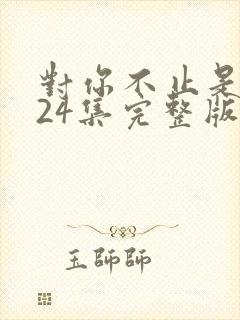 對你不止是
24集完整版
玉師師